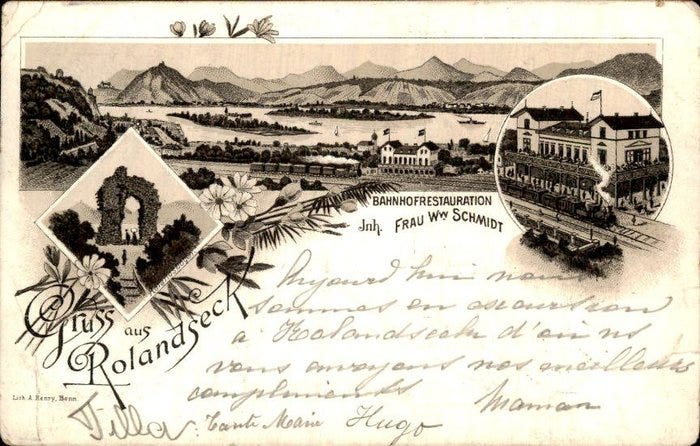 BAHNHOFRESTAURATION
Jnh. FRAU Wwe SCHMIDT
Gruss aus
Rolandseck
Aujourd'hui nous
sommes en excursion
à Rolandseck d'où ns
vous envoyons nos meilleurs
compliments Maman
Tilla Tante Marie Hugo
Lith. A. Henry, Bonn